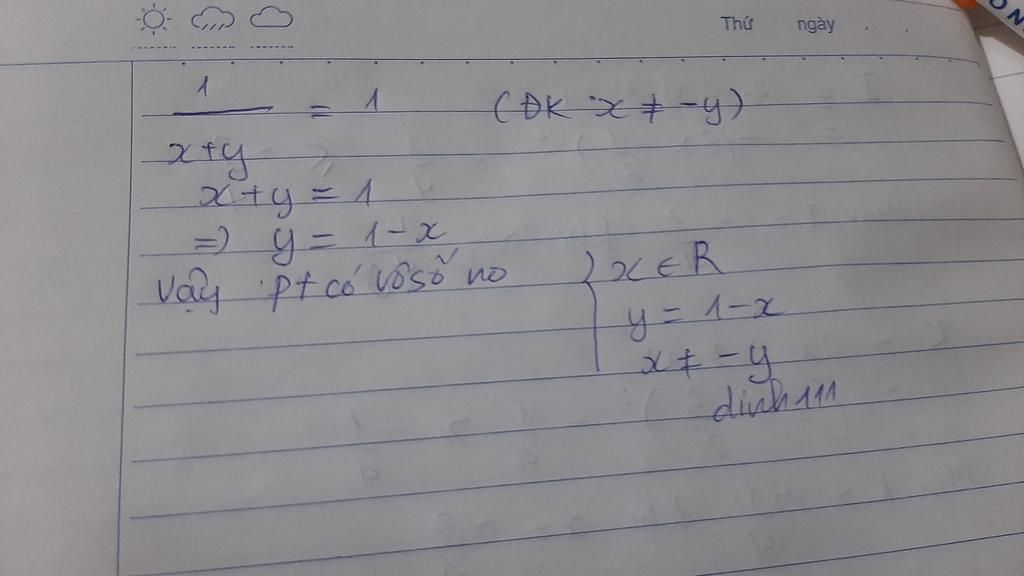 Thứ ngày
1
___ = 1 (ĐK x ≠ -y)
x+y
x+y = 1
=) y = 1-x
Vậy pt có vô số no { x ∈ R
y = 1-x
x ≠ -y
dinh111